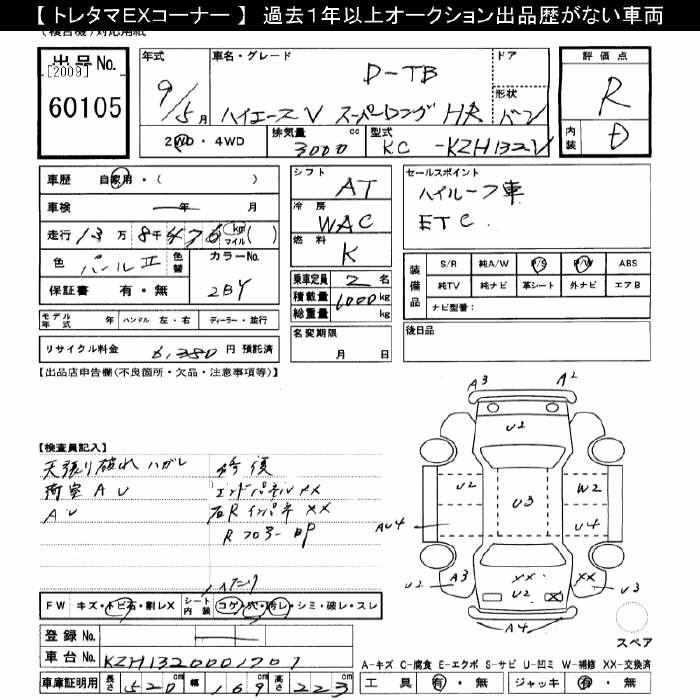 【 トレタマＥＸコーナー 】 過去１年以上オークション出品歴がない車両
出品No.
[2009]
60105
年式
9/5月
車名・グレード
D-TB
ハイエースV スーパーロング HR バン
ドア
形状
2WD・4WD
排気量 cc
3000
型式
KC -KZH132V
評価点
R
内装
D
車歴 自家用・( )
車検 年 月
走行 13万8千476 km マイル ( )
色 パールII 色替
カラーNo.
2BY
保証書 有・無
モデル年式 年 ハンドル 左・右 ディーラー・並行
リサイクル料金 6,380 円 預託済
シフト
AT
冷房
WAC
燃料
K
乗車定員 2 名
積載量 1000 kg
総重量 kg
名変期限
月 日
セールスポイント
ハイルーフ車
ETC
装備品
S/R 純A/W P/S P/W ABS
純TV 純ナビ 革シート 外ナビ エアB
ナビ型番:
後日品
【出品店申告欄(不良箇所・欠品・注意事項等)】
【検査員記入】
天張り破れ ハガレ
荷室 A U
A U
修復
エンドパネルXX
右Rインパネ XX
Rフロアー
A3
A2
U2
U2
W2
U3
U4
AU4
U2
A3
XX
U2
XX
U3
A4
スペア
FW キズ・トビ石・割レX シート内装 コゲ・穴・汚レ・シミ・破レ・スレ
登録No.
車台No. KZH1320001707
車庫証明用 長さ 520 cm 幅 169 cm 高さ 223 cm
A-キズ C-腐食 E-エクボ S-サビ U-凹ミ W-補修 XX-交換済
工具 有・無 ジャッキ 有・無